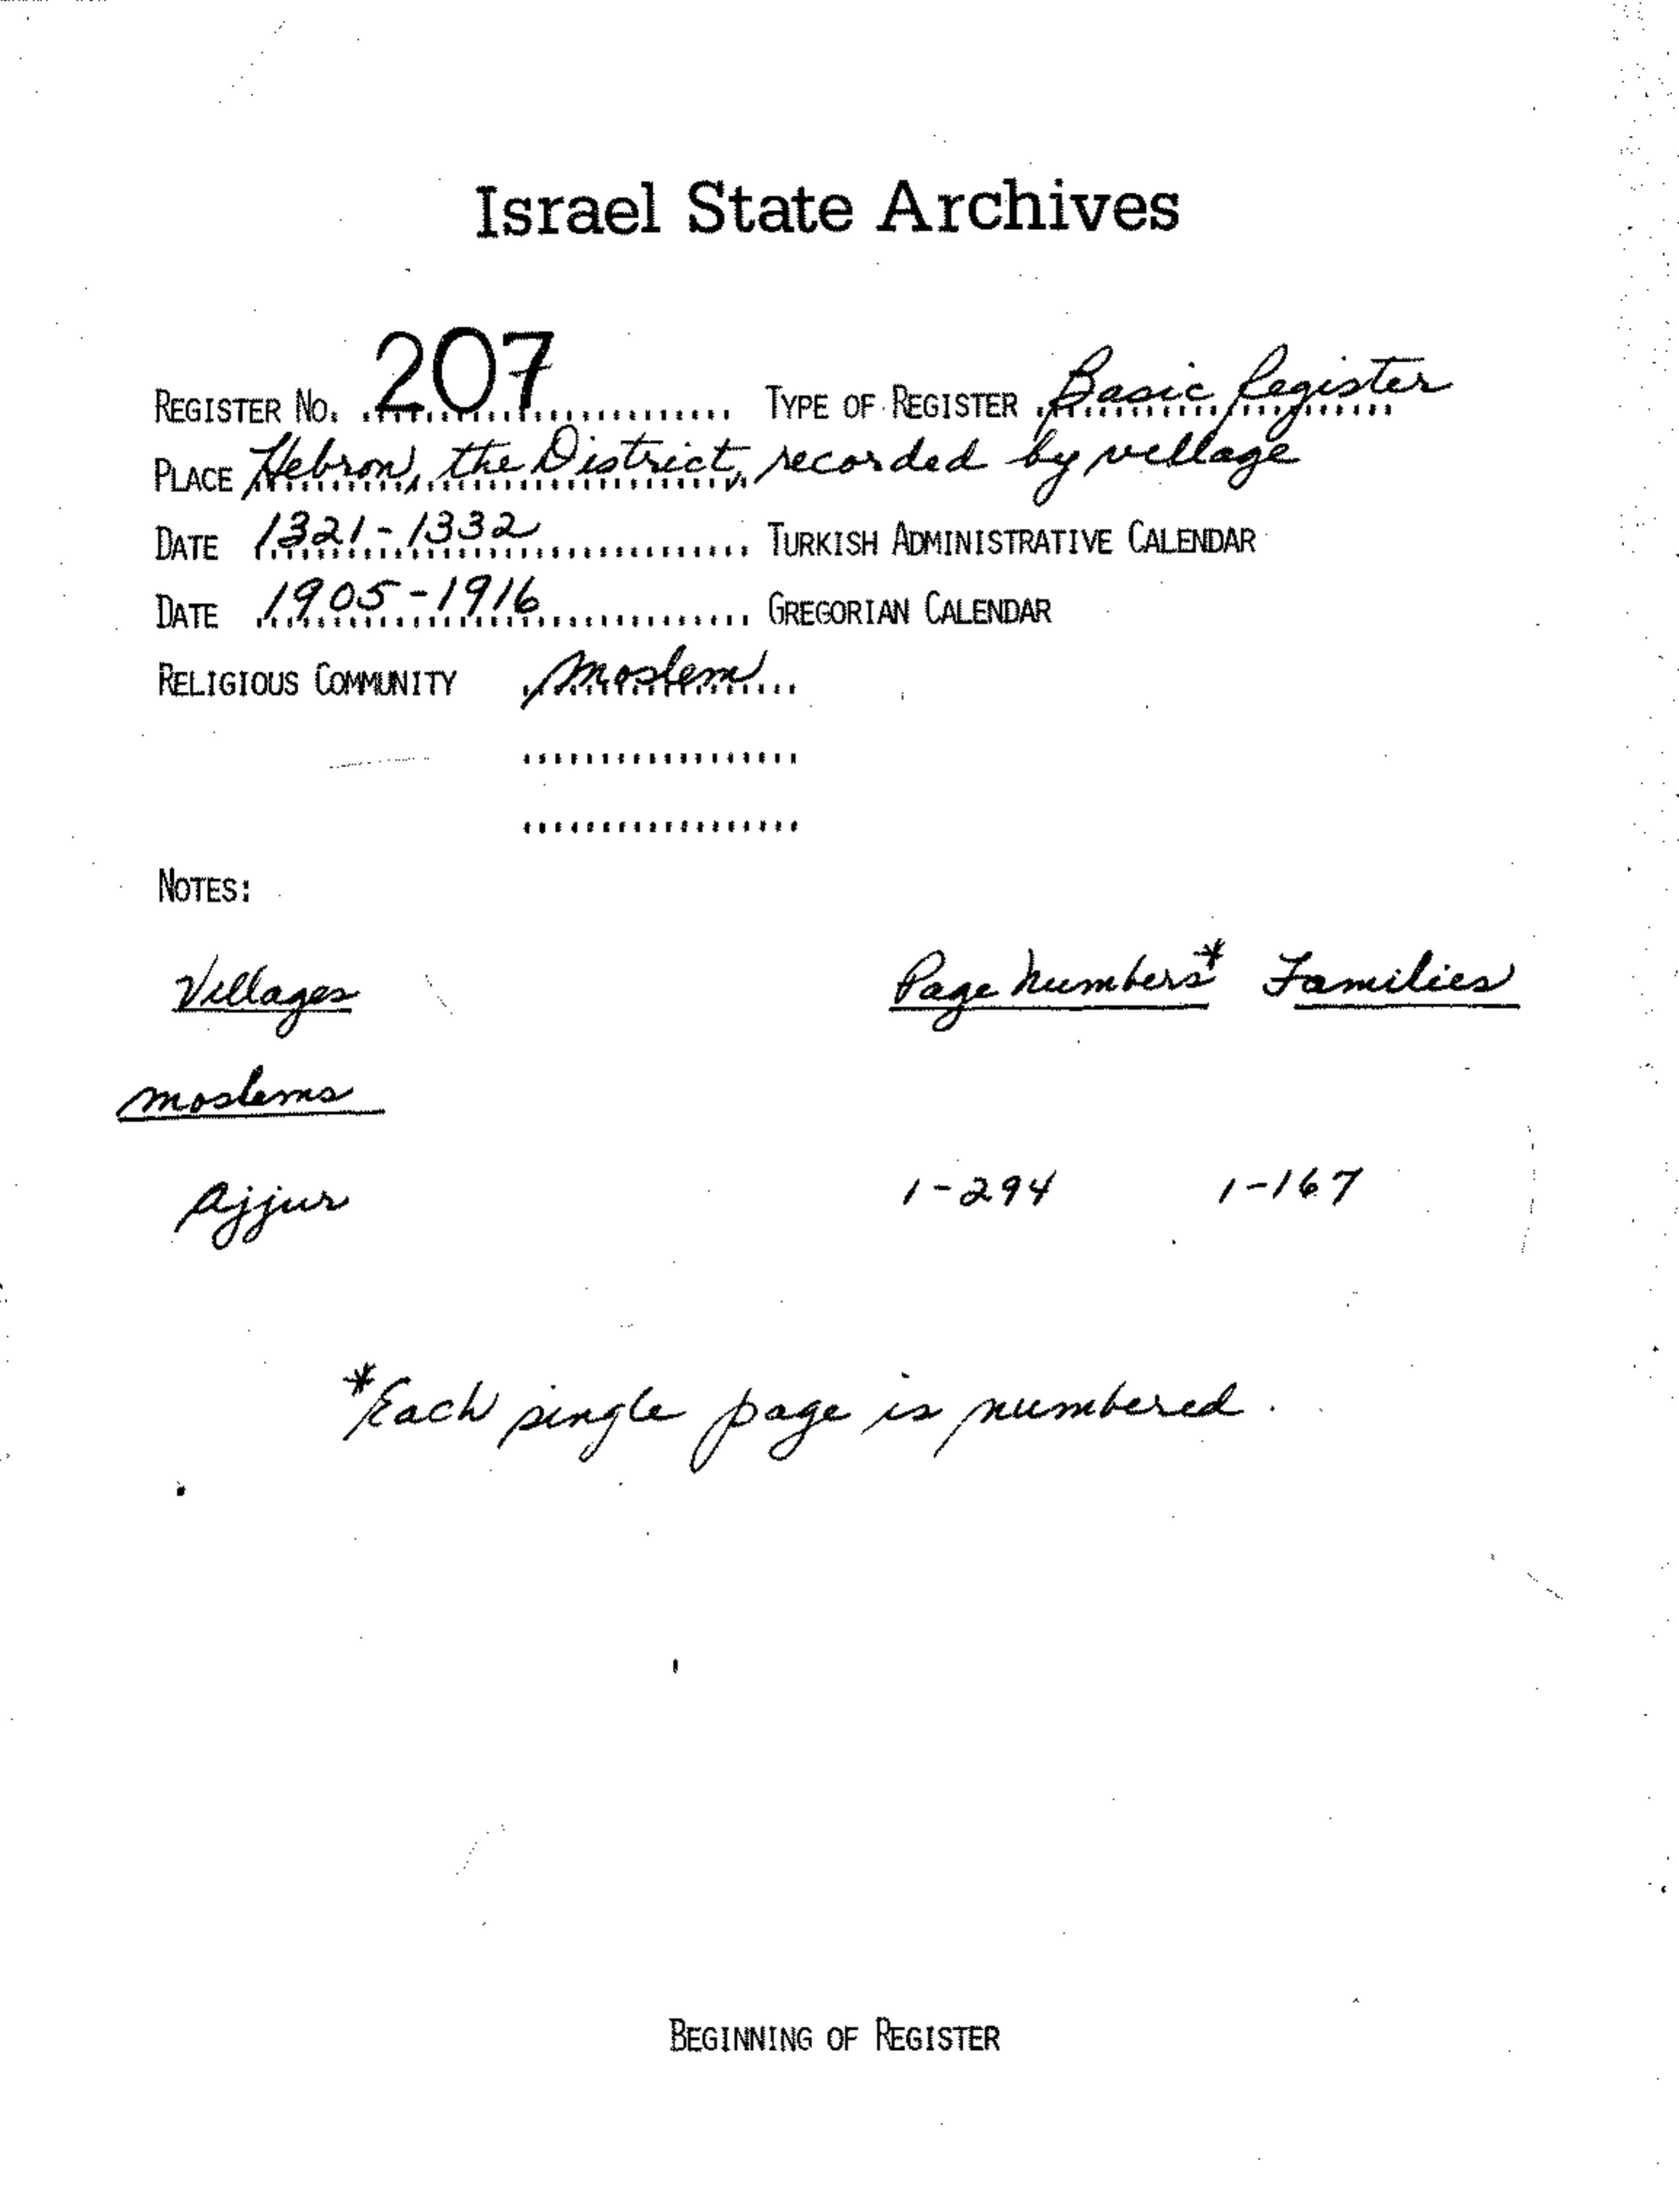 Israel State Archives
REGISTER NO. 207 TYPE OF REGISTER Basic Register
PLACE Hebron, the District, recorded by village
DATE 1321-1332 TURKISH ADMINISTRATIVE CALENDAR
DATE 1905-1916 GREGORIAN CALENDAR
RELIGIOUS COMMUNITY Moslem
NOTES:
Villages Page Numbers* Families
Moslems
Ajjur 1-294 1-167
*Each single page is numbered.
BEGINNING OF REGISTER